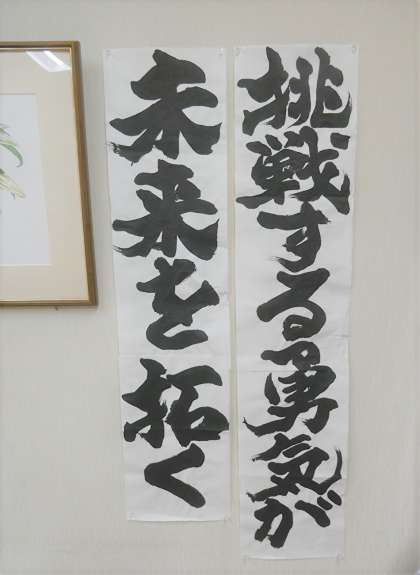 挑戦する勇気が
未来を拓く